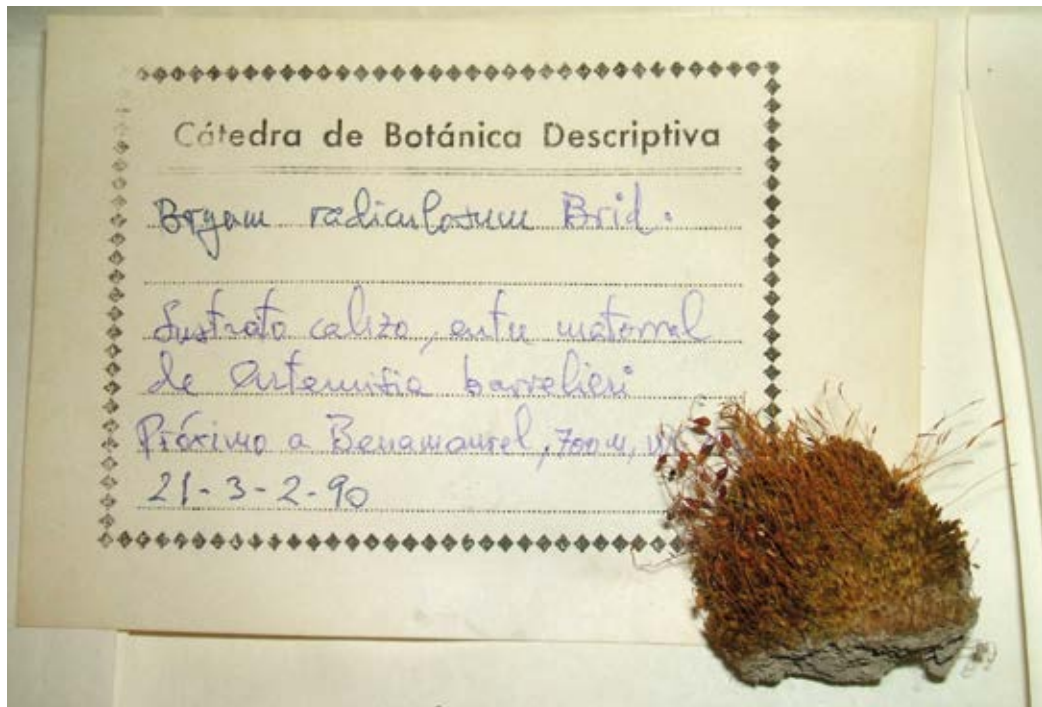 Cátedra de Botánica Descriptiva
Bryum radiculosum Brid.
Sustrato calizo, entre matorral
de Artemisia barrelieri
Próximo a Benamaurel, 700 m,
21-3-2-90